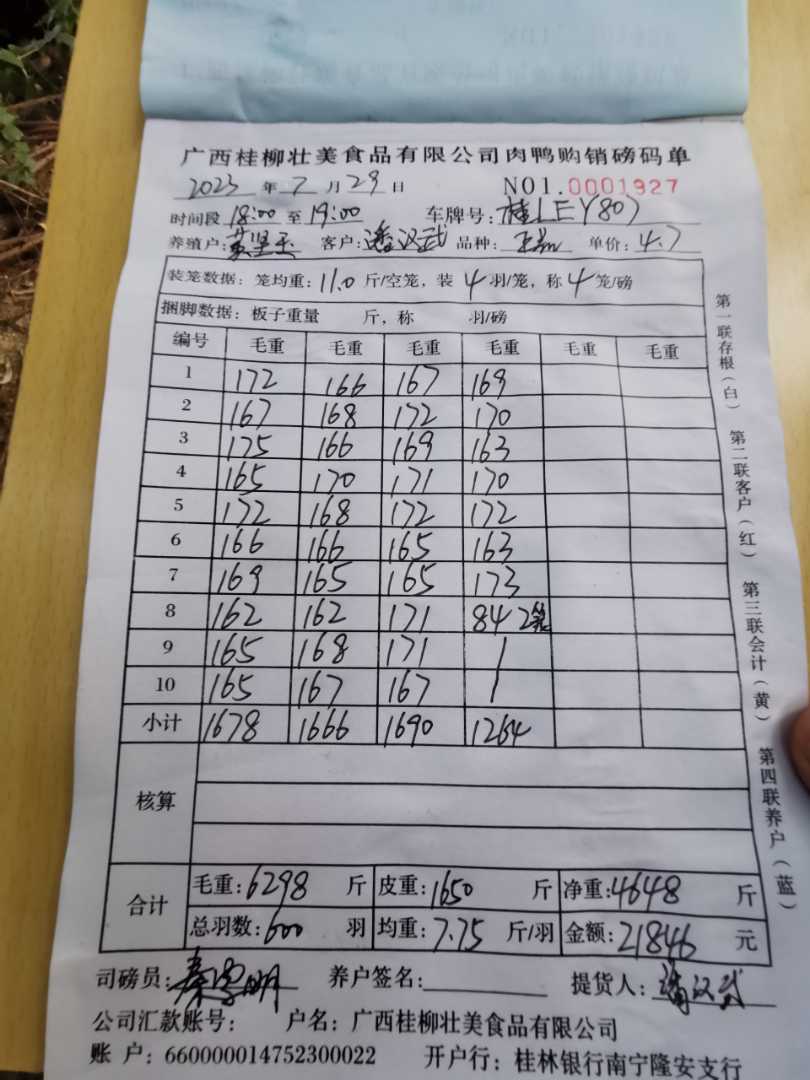 广西桂柳壮美食品有限公司肉鸭购销磅码单
2023 年 7 月 29 日 NO1.0001927
时间段 18:00 至 19:00 车牌号: 桂LEY807
养殖户: 黄坚玉 客户: 潘汉武 品种: 单价: 4.7
装笼数据: 笼均重: 11.0 斤/空笼, 装 4 羽/笼, 称 4 笼/磅
捆脚数据: 板子重量 斤, 称 羽/磅
编号 毛重 毛重 毛重 毛重 毛重 毛重
1 172 166 167 169
2 167 168 172 170
3 175 166 169 163
4 165 170 171 170
5 172 168 172 172
6 166 166 165 163
7 169 165 165 173
8 162 162 171 84 2笼
9 165 168 171 /
10 165 167 167 /
小计 1678 1666 1690 1264
核算
合计 毛重: 6298 斤 皮重: 1650 斤 净重: 4648 斤
总羽数: 600 羽 均重: 7.75 斤/羽 金额: 21846 元
司磅员: 养户签名: 提货人: 潘汉武
公司汇款账号: 户名: 广西桂柳壮美食品有限公司
账 户: 660000014752300022 开户行: 桂林银行南宁隆安支行
第一联存根(白) 第二联客户(红) 第三联会计(黄) 第四联养户(蓝)